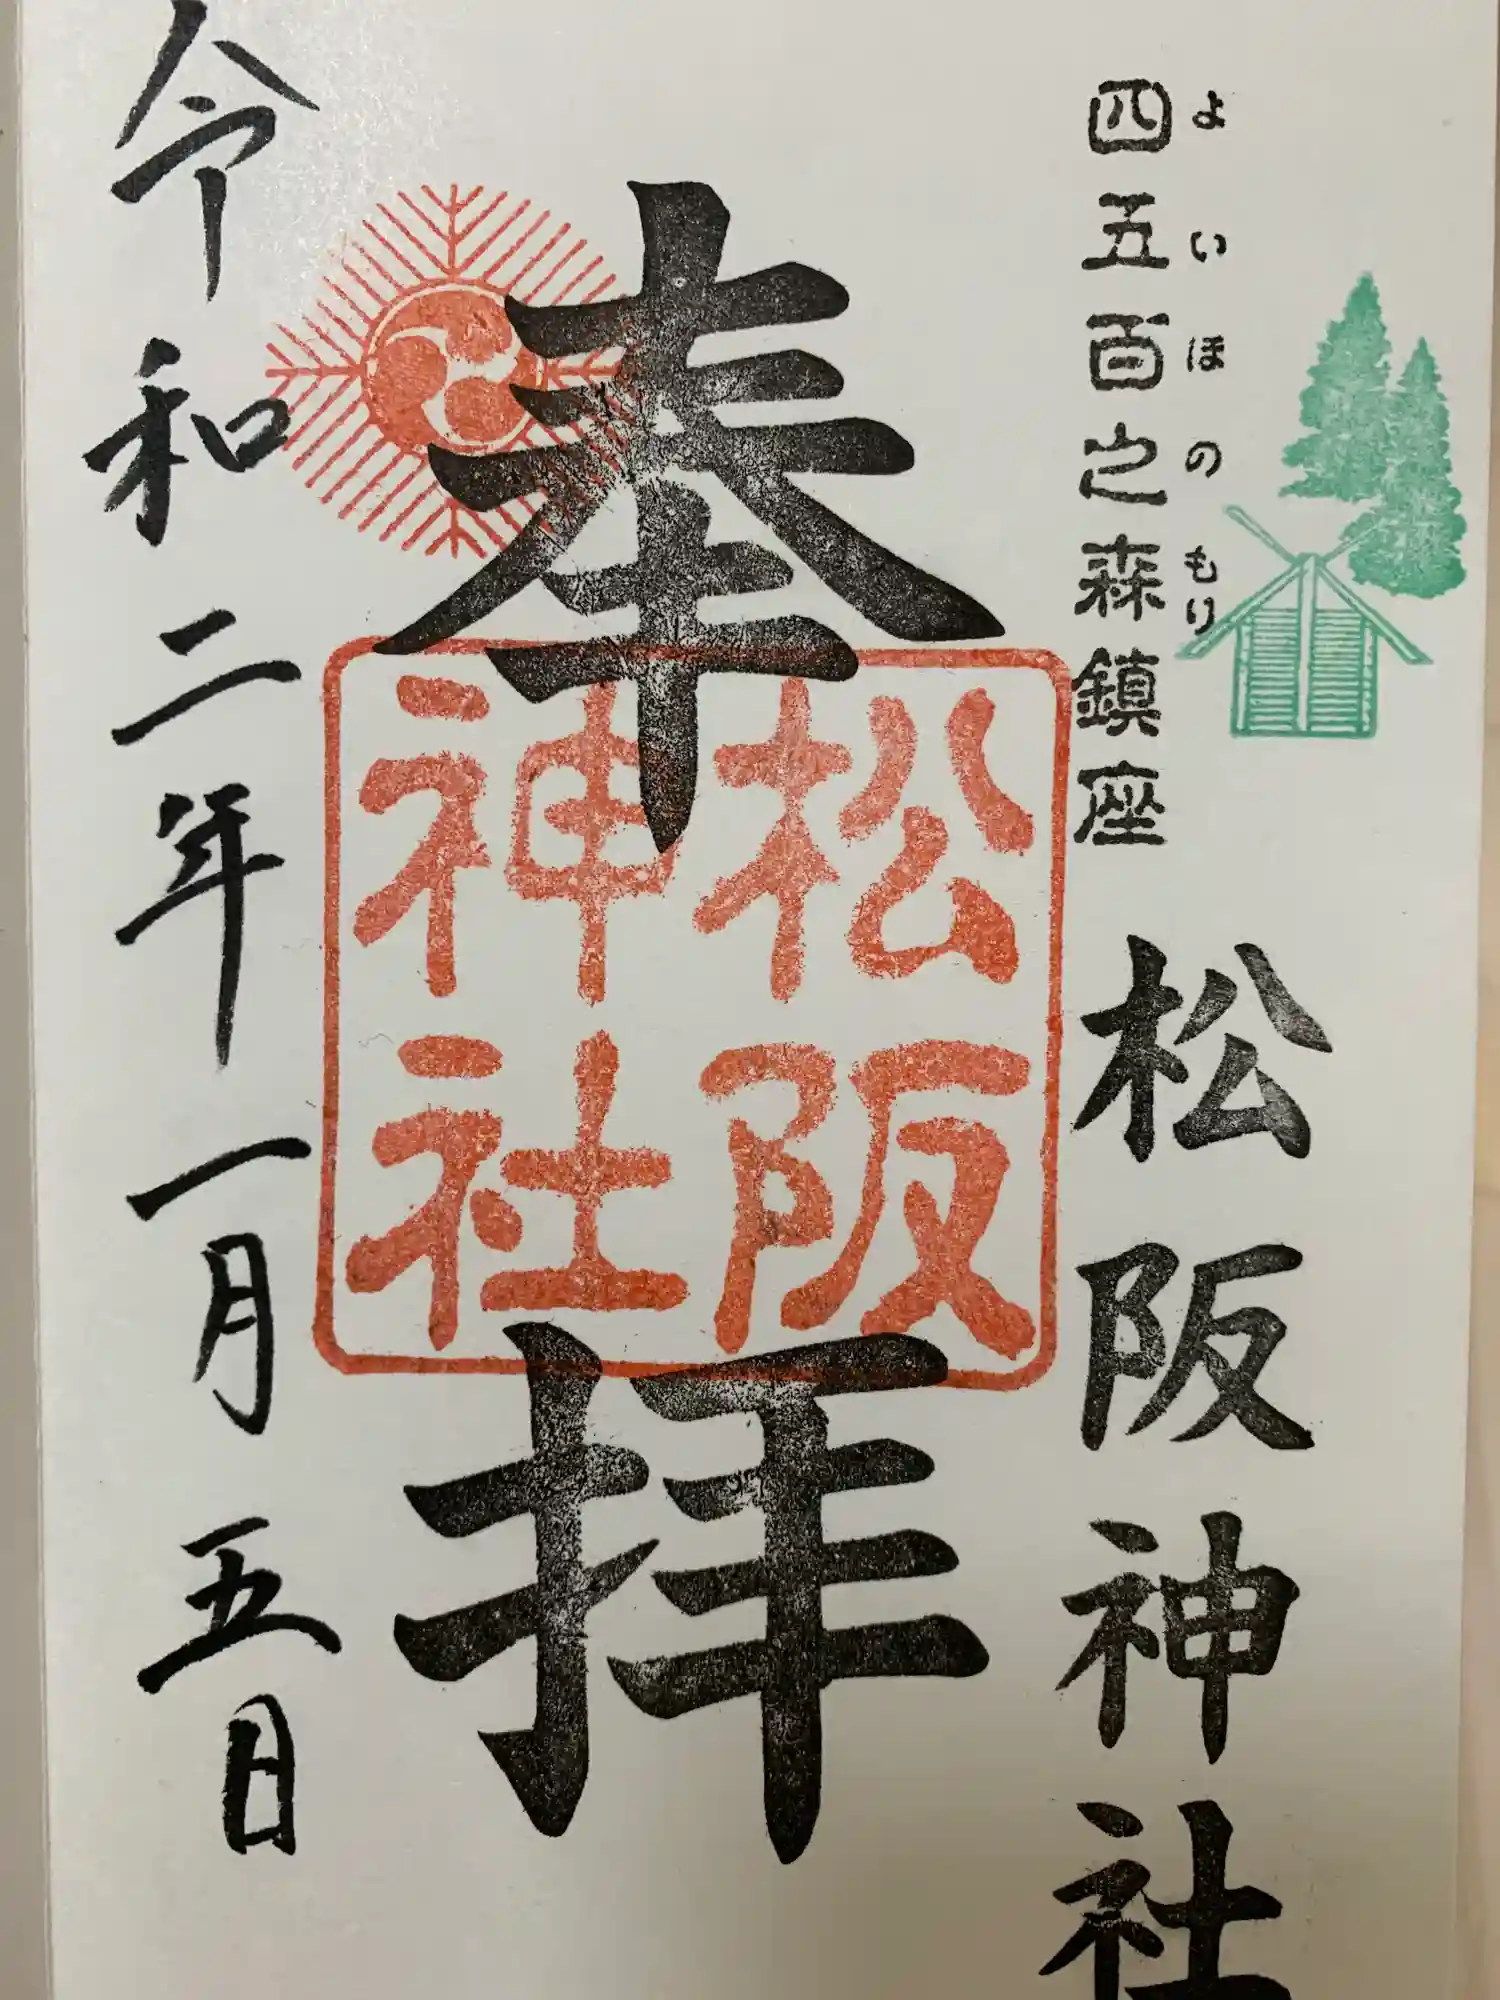 よいほのもり
四五百之森鎮座
松阪神社
奉拝
松阪
神社
令和二年一月五日